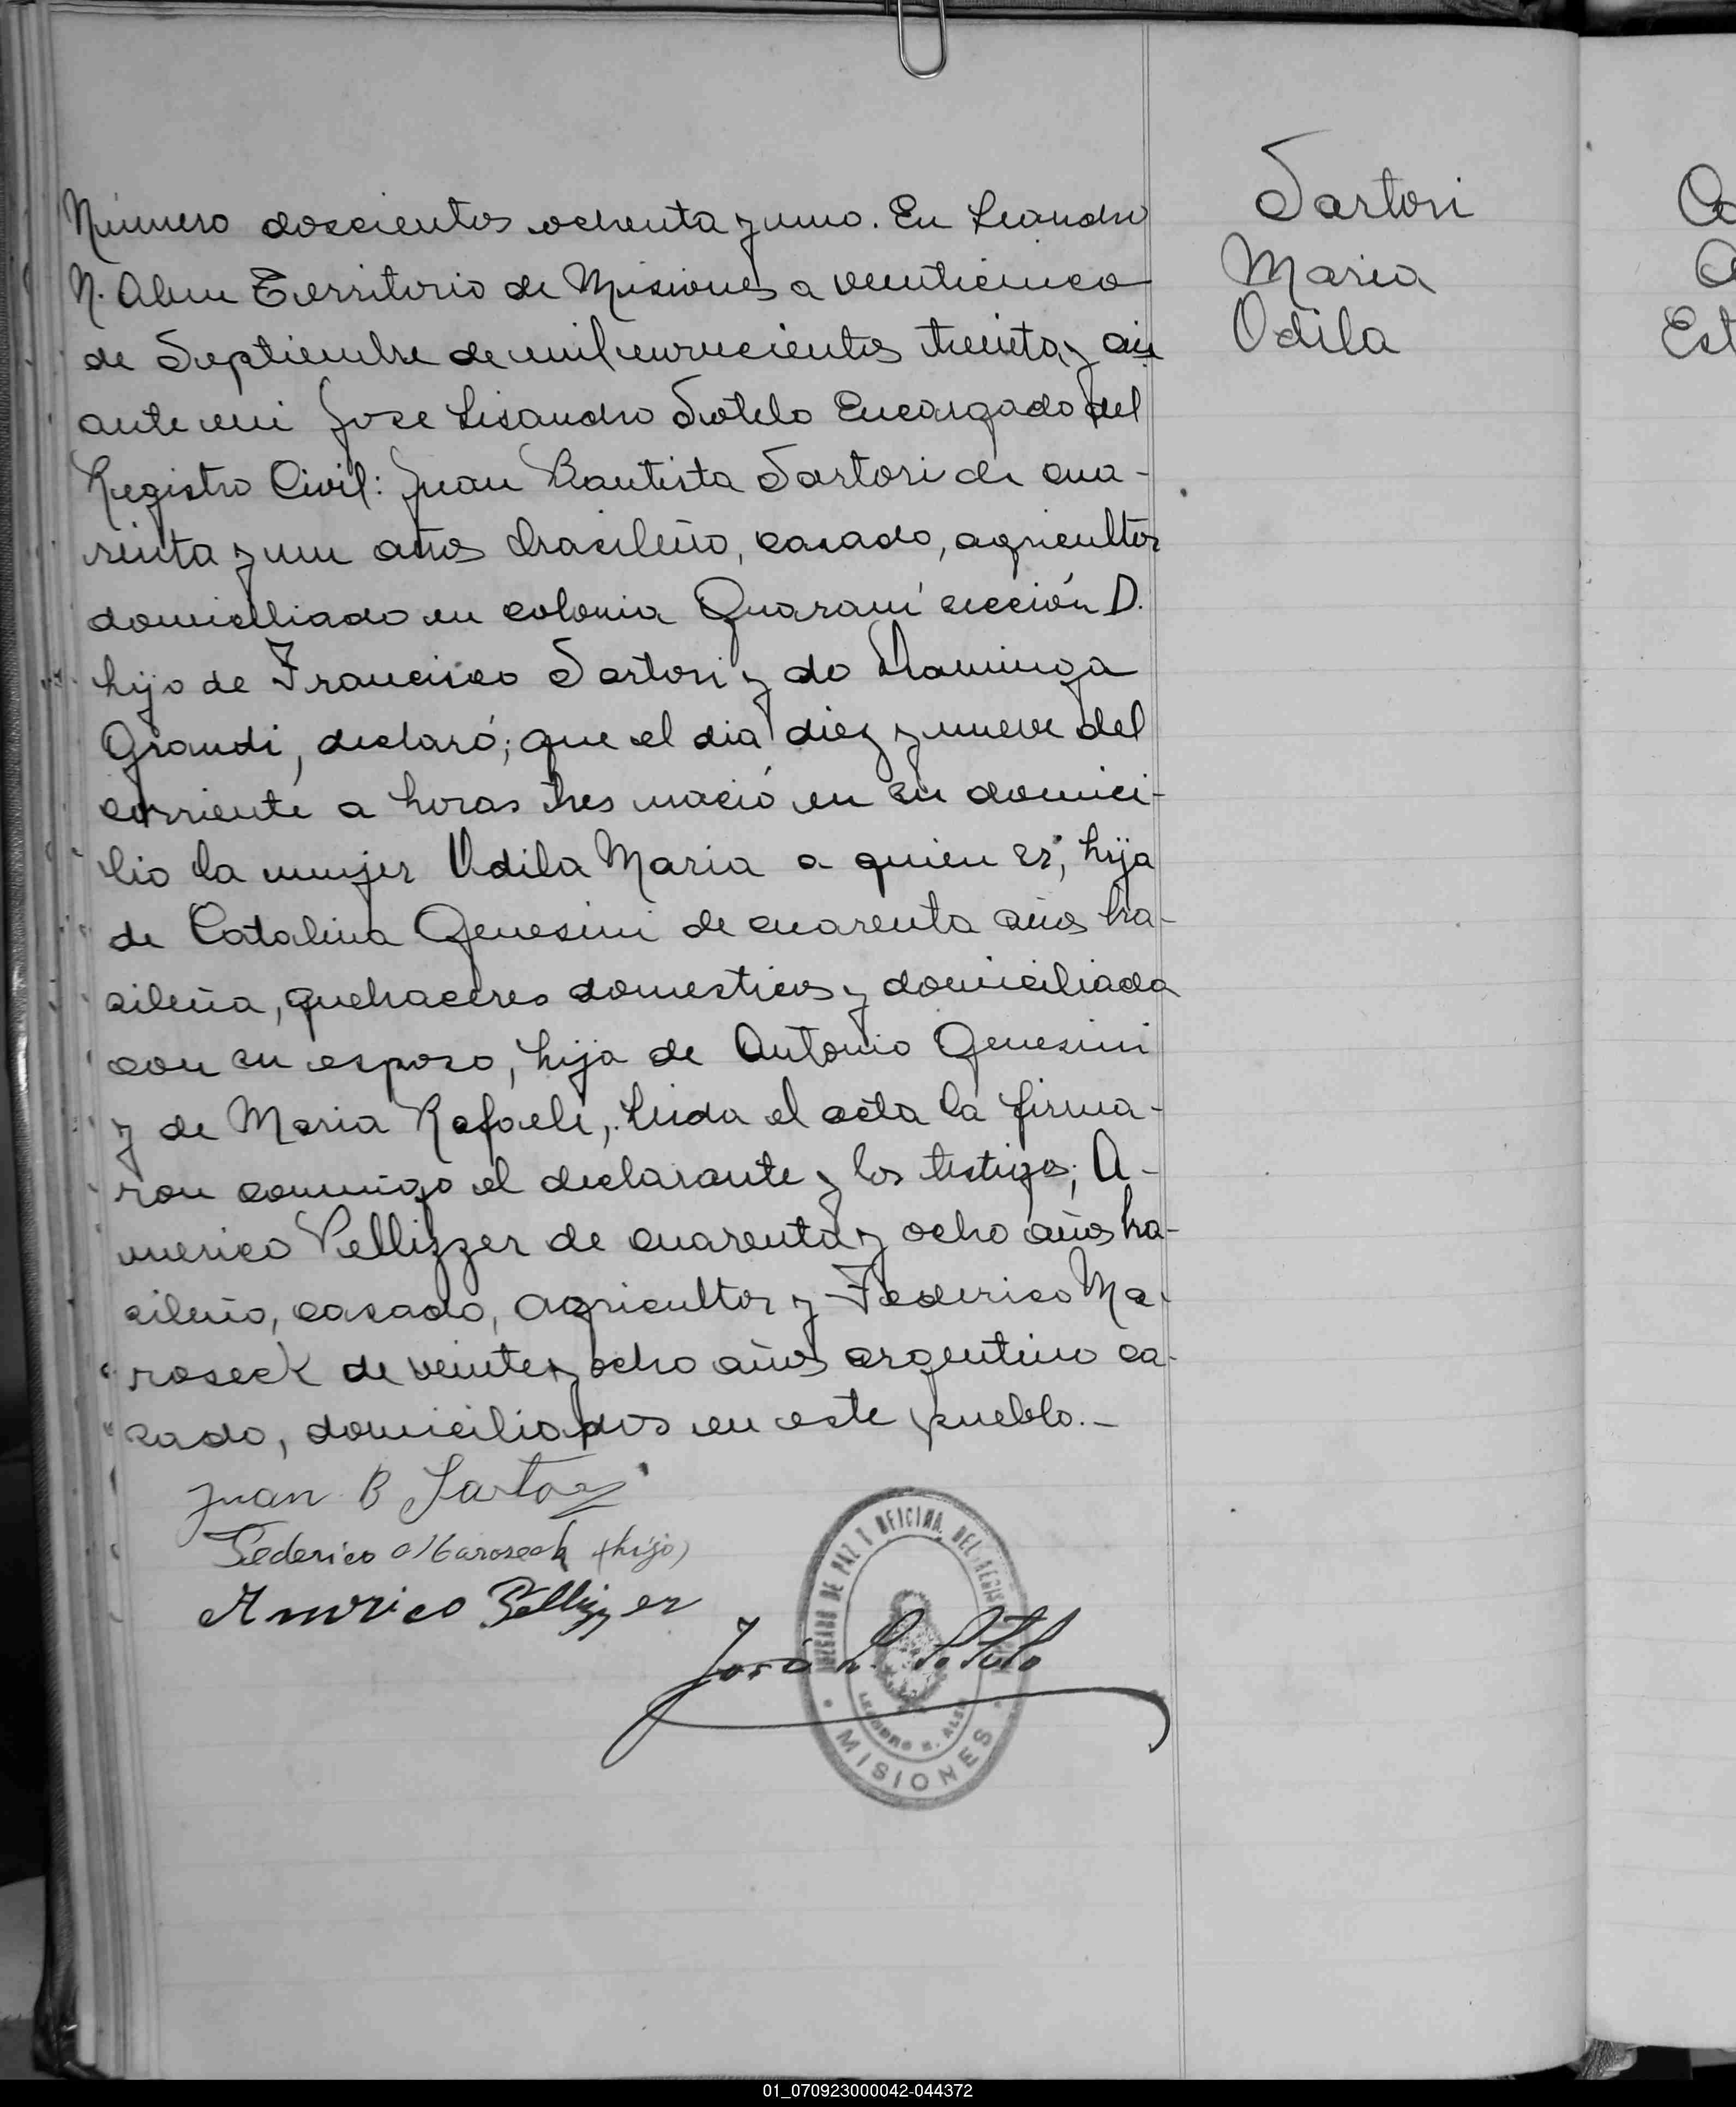 Sartori
Maria
Odila
Número doscientos ochenta y uno. En Leandro
N. Alem Territorio de Misiones a veinticinco
de Septiembre de mil novecientos treinta y
ante mi Jose Lisandro Sotelo Encargado del
Registro Civil: Juan Bautista Sartori de cua-
renta y un años brasileño, casado, agricultor
domicilliado en colonia Guaraní sección D.
hijo de Francisco Sartori y do Dominga
Grandi, declaró; que el dia diez y nueve del
corriente a horas tres nació en su domici-
lio la mujer Odila Maria a quien es; hija
de Catalina Genesini de cuarenta años bra-
sileña, quehaceres domesticos y domiciliada
con su esposo, hija de Antonio Genesini
y de Maria Rafaeli, Leida el acta la firma-
ron conmigo el declarante y los testigos; A-
merico Pellizzer de cuarenta y ocho años bra-
sileño, casado, agricultor y Federico Ma-
roseck de veinte y ocho años argentino ca-
sado, domiciliados en este pueblo.-
Juan B Sartori
Federico Maroseck (hijo)
Americo Pellizzer
José L. Sotelo
JUZGADO DE PAZ Y OFICINA DEL REGIS
LEANDRO N. ALEM
MISIONES
Est
01_070923000042-044372